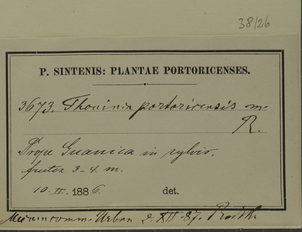 38/26
P. SINTENIS: PLANTAE PORTORICENSES.
3673. Thouinia portoricensis m.
R.
Prope Guanica in sylvis,
frutex 3-4 m.
10. II. 1886 det.
Urban 2. XII. 87. Radlk.